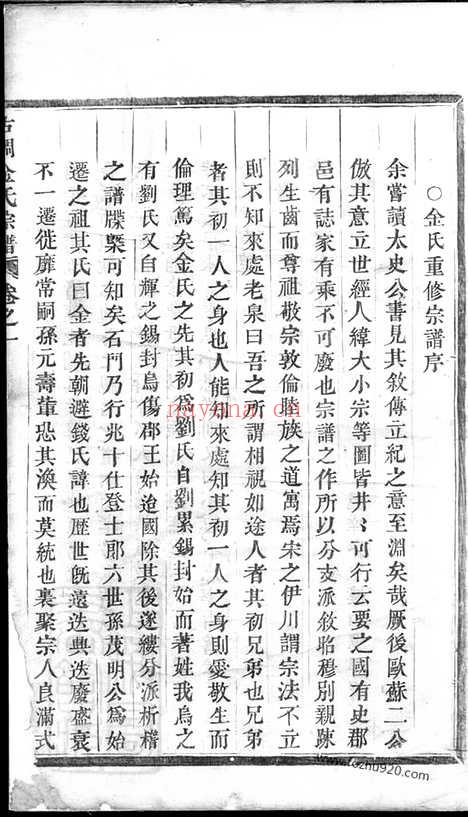 ○金氏重修宗譜序
余嘗讀太史公書見其敘傳立紀之意至淵矣哉厥後歐蘇二公
倣其意立世經人緯大小宗等圖皆井〻可行云要之國有史郡
邑有誌家有乘不可廢也宗譜之作所以分支派敘昭穆別親踈
列生齒而尊祖敬宗敦倫睦族之道寓焉宋之伊川謂宗法不立
則不知來處老泉曰吾之所謂相視如途人者其初兄弟也兄弟
者其初一人之身也人能知來處知其初一人之身則愛敬生而
倫理篤矣金氏之先其初爲劉氏自劉累錫封始而著姓我烏之
有劉氏又自輝之錫封烏傷郡王始迨國除其後遂縷分派析稽
之譜牒槩可知矣石門乃行兆十仕登士郎六世孫茂明公爲始
遷之祖其氏曰金者先朝避錢氏諱也歷世旣遠迭興迭廢盛衰
不一遷徙靡常嗣孫元壽輩恐其渙而莫統也裒聚宗人良滿式
金氏宗譜 卷之一
nayona.cn
www.tozhu920.com